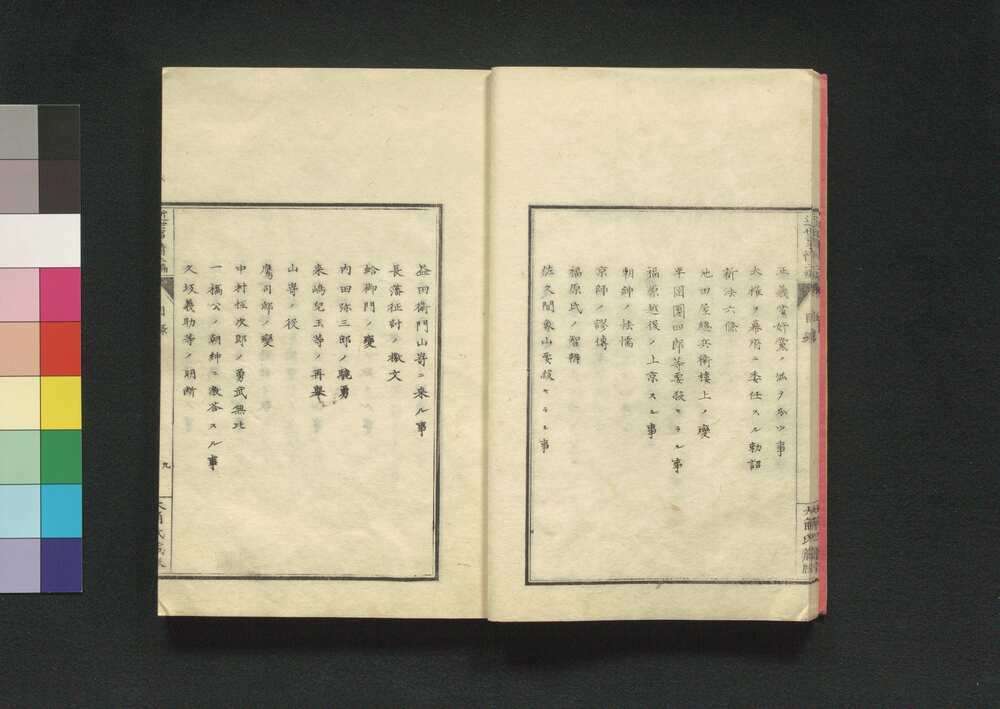 正義黨奸黨ノ派ヲ分ツ事
大権ヲ幕府ニ委任スル勅詔
新法六條
池田屋惣兵衛樓上ノ變
平岡圓四郎等要殺セラル事
福原越後ノ上京スル事
朝紳ノ怯懦
京師ノ謬傳
福原氏ノ智辨
佐久間象山要殺セラル事
益田衛門山嵜ニ来ル事
長藩征討ノ檄文
蛤御門ノ變
内田弥三郎ノ驍勇
来嶋兒玉等ノ再擧
山嵜ノ役
鷹司邸ノ變
中村恒次郎ノ勇武無比
一橋公ノ朝紳ニ激答スル事
久坂義助等ノ明断
目録
九